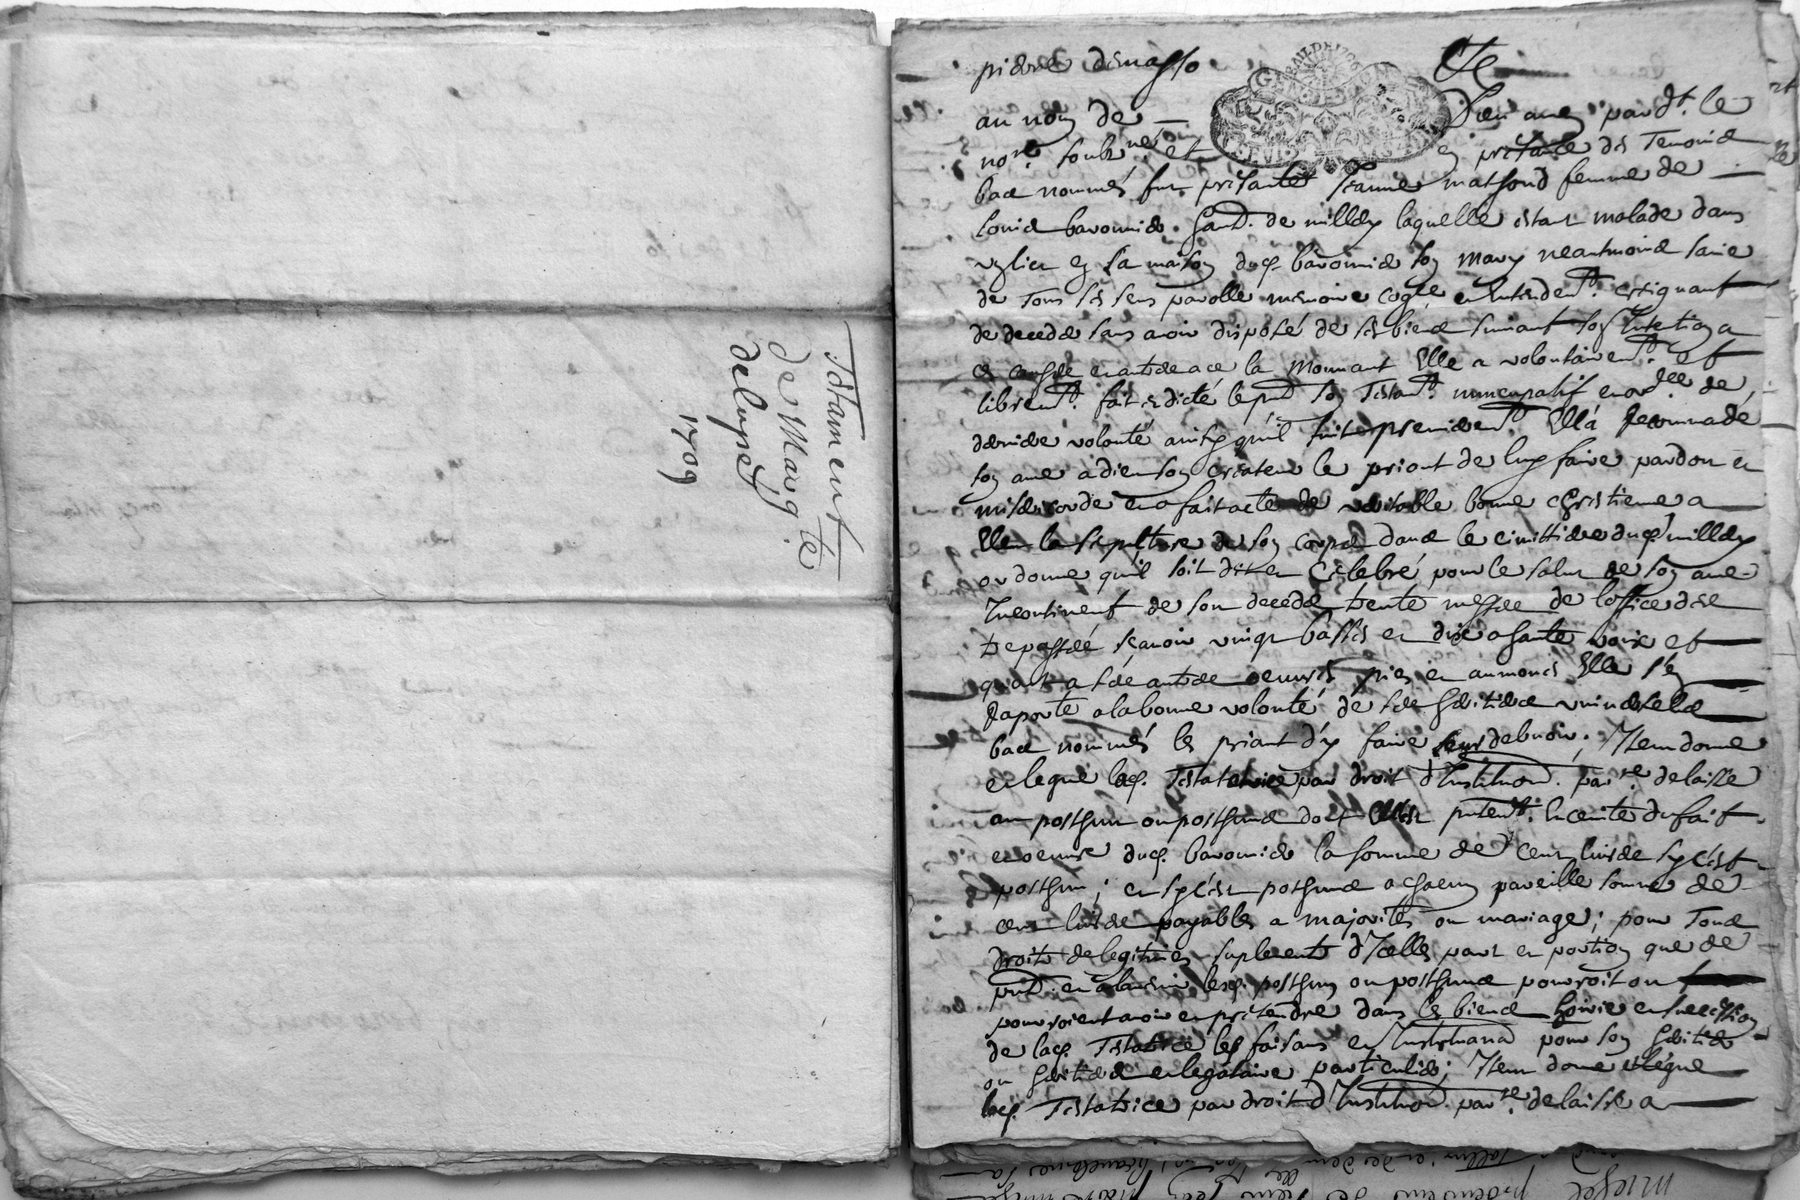 Testament
de Marg.te
delupé
1709
pierre demasso
au nom de Dieu amen pard.t le
no.re soubz.né et en presence des Temoins
bas nommés fut presante Jeanne mathond femme de
Louis baromier . de millery laquelle estant malade dans
en sa maison dud. baromier son mary neantmoins saine
de Tous ses sens parolle memoire et entendem.t craignant
de deceder sans avoir disposé de ses biens suivant son Intention a
la Mouvant Elle a volontairem.t et
librem.t fait et dicté le pnt son Testam.t nuncupatif et ord.ce de
derniere volonté ainsy qu'il suit premierem.t Ella Recommandé
son ame a dieu son createur le priant de luy faire pardon et
misericorde et a fait acte de veritable bonne chrestienne a
Elleu la sepulture de son corps dans le cimittiere dud. millery
ordonne quil soit dit et Celebré pour le salut de son ame
Incontinent de son decedz trente messes de l'office des
trepassés scavoir vingt basses et dix a haute voix et
quant a ses autres oeuvres pies et aumones Elle s'en
Raporte a la bonne volonté de ses heritiers universels
bas nommés les priant d'y faire leur debvoir ; Item donne
et legue lad. Testatrice par droit d'Institution par.re delaisse
au posthume ou posthumes dont Elle est pntem.t Enceinte du fait
et oeuvre dud. baromier la somme de cent livres sy c'est
posthume ; et sy c'est posthumes a chacun pareille somme de
cent livres payables a majorités ou mariage ; pour Tous
droits de legitimes suplement d'Icelles part et portion que de
pnt et a lavenir lesd. posthume ou posthumes pourroit ou
pourroient avoir et pretendre dans les biens hoirie et succession
de lad. Testatrice les faisant et Instituant pour son heritier
ou heritiers et legataire particulier ; Item donne et legue
lad. Testatrice par droit d'Institution par.re delaisse a